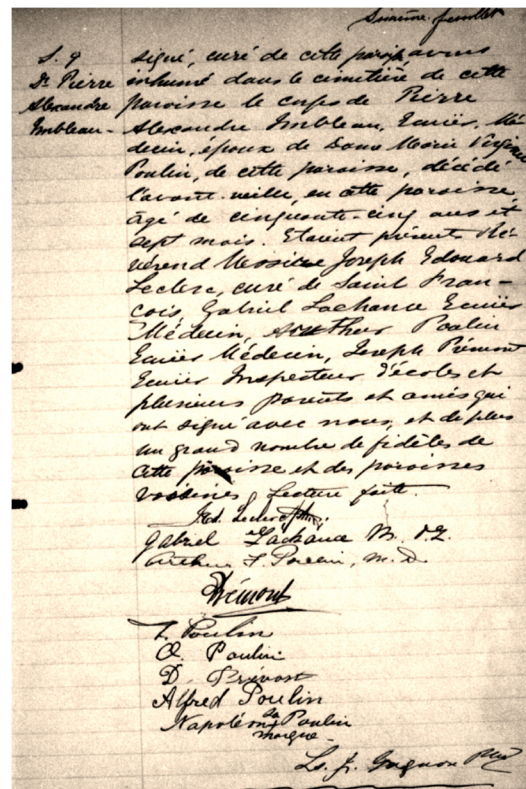 Sixième feuillet
S. 9
Dr Pierre
Alexandre
Imbleau-
signé, curé de cette paroisse avons
inhumé dans le cimetière de cette
paroisse le corps de Pierre
Alexandre Imbleau, Ecuier, Mé-
decin, époux de Dame Marie Virginie
Poulin, de cette paroisse, décédé
l'avant-veille, en cette paroisse
âgé de cinquante-cinq ans et
sept mois. Etaient présents Ré-
vérend Messire Joseph Edouard
Leclerc, curé de Saint Fran-
çois, Gabriel Lachance Ecuier
Médecin, Arthur Poulin
Ecuier Médecin, Joseph Prémont
Ecuier Inspecteur d'écoles et
plusieurs parents et amis qui
ont signé avec nous, et de plus
un grand nombre de fidèles de
cette paroisse et des paroisses
voisines, Lecture faite.
Jos. Ed. Leclerc Ptre
Gabriel Lachance M.
Arthur J. Poulin, M.D.
Prémont
Poulin
O. Poulin
D. Prévost
Alfred Poulin
Napoléon Poulin
sa
marque
Ls. J. Gagnon Ptre